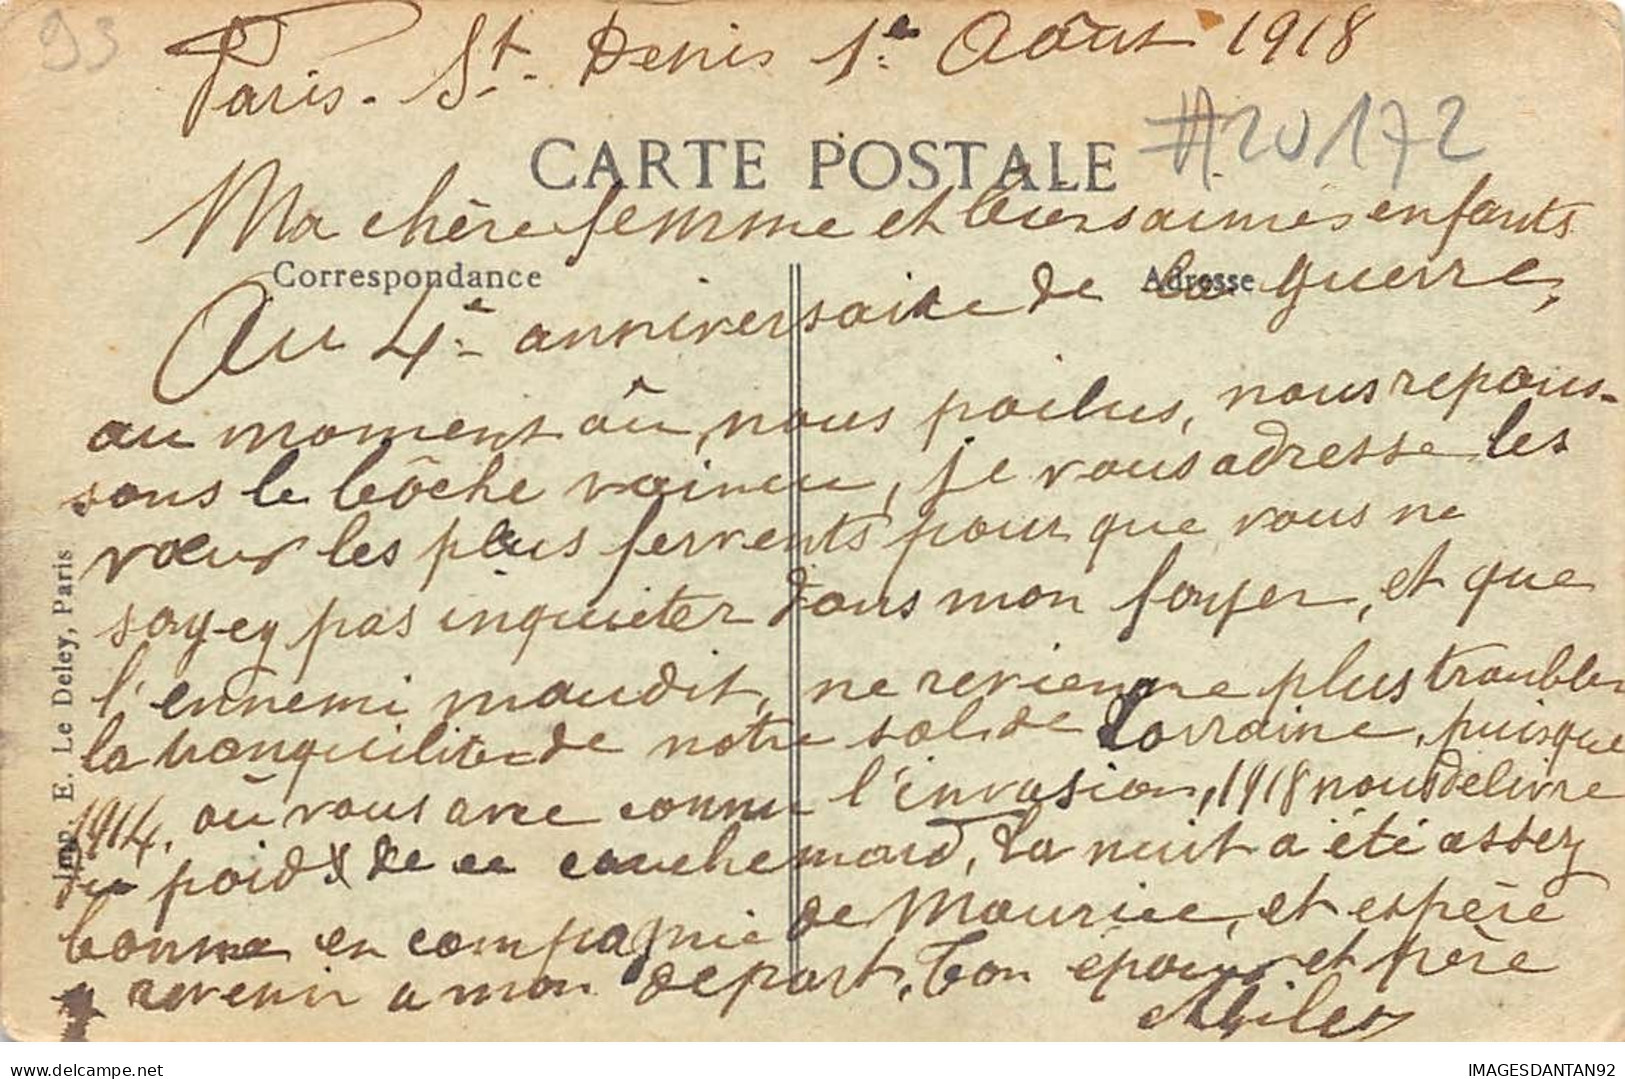 93
Paris. St. Denis 1.e Août 1918
CARTE POSTALE
#20172
Ma chère femme et biens aimés enfants
Correspondance
Adresse
Au 4.e anniversaire de la guerre,
au moment où, nous poilus, nous repous-
sons le bôche vaincu, je vous adresse les
vœux les plus fervents pour que vous ne
soyez pas inquieter dans mon foyer, et que
l'ennemi maudit, ne revienne plus troubler
la tranquilite de notre sol de Lorraine, puisque
1914, où vous avec connu l'invasion, 1918 nous delivre
du poids de ce cauchemard, La nuit a été assez
bonne en compagnie de Maurice, et espère
y revenir a mon depart, Ton époux et père
Achiles
Imp. E. Le Deley, Paris
delcampe.net
IMAGESDANTAN92